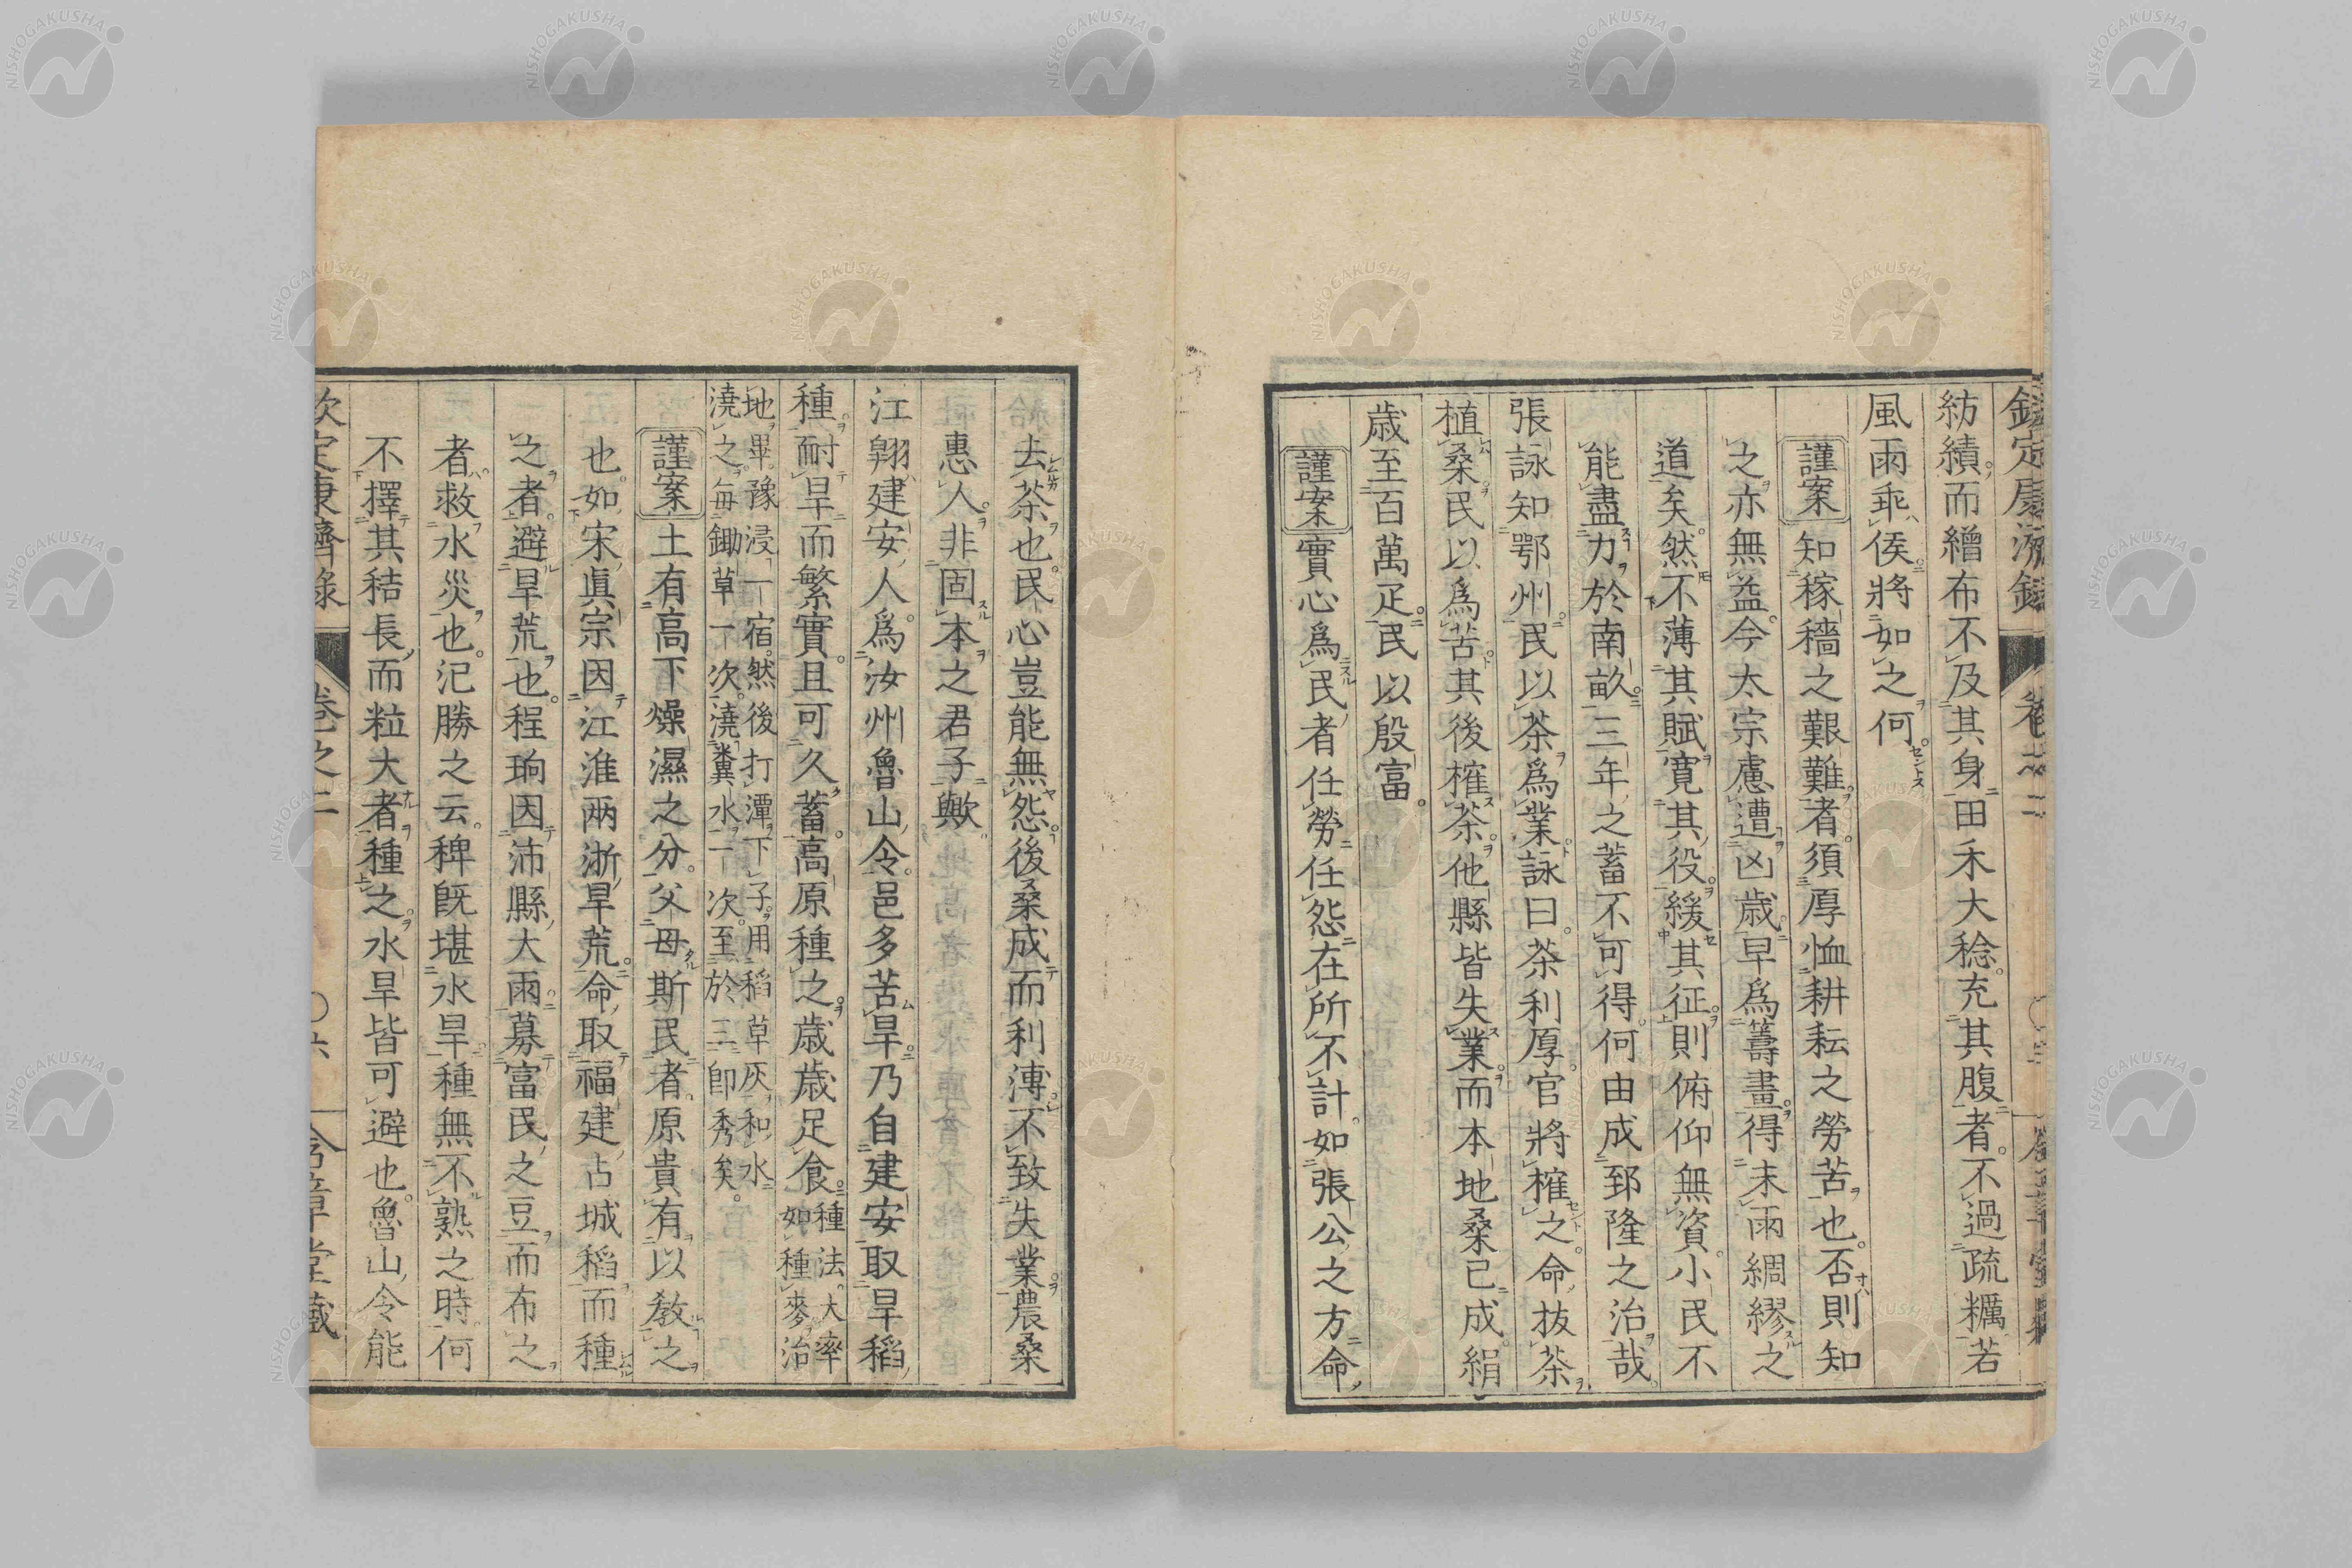 紡績而繒布不及其身田禾大稔充其腹者不過疏糲若
風雨乖候將如之何
謹案知稼穡之艱難者須厚恤耕耘之勞苦也否則知
之亦無益今太宗慮遭凶歲早爲籌畫得未雨綢繆之
道矣然不薄其賦寬其役緩其征則俯仰無資小民不
能盡力於南畝三年之蓄不可得何由成郅隆之治哉
張詠知鄂州民以茶爲業詠曰茶利厚官將榷之命拔茶
植桑民以爲苦其後榷茶他縣皆失業而本地桑已成絹
歲至百萬疋民以殷富
謹案實心爲民者任勞任怨在所不計如張公之方命
去茶也民心豈能無怨後桑成而利溥不致失業農桑
惠人非固本之君子歟
江翱建安人爲汝州魯山令邑多苦旱乃自建安取旱稻
種耐旱而繁實且可久蓄高原種之歲歲足食種法大率如種麥治
地畢豫浸一宿然後打潭下子用稻草灰和水
澆之每鋤草一次澆糞水一次至於三卽秀矣
謹案土有高下燥濕之分父母斯民者原貴有以教之
也如宋眞宗因江淮兩浙旱荒命取福建占城稻而種
之者避旱荒也程珦因沛縣大雨募富民之豆而布之
者救水災也氾勝之云稗旣堪水旱種無不熟之時何
不擇其秸長而粒大者種之水旱皆可避也魯山令能
欽定康濟錄 卷之二 ○六 含章堂藏